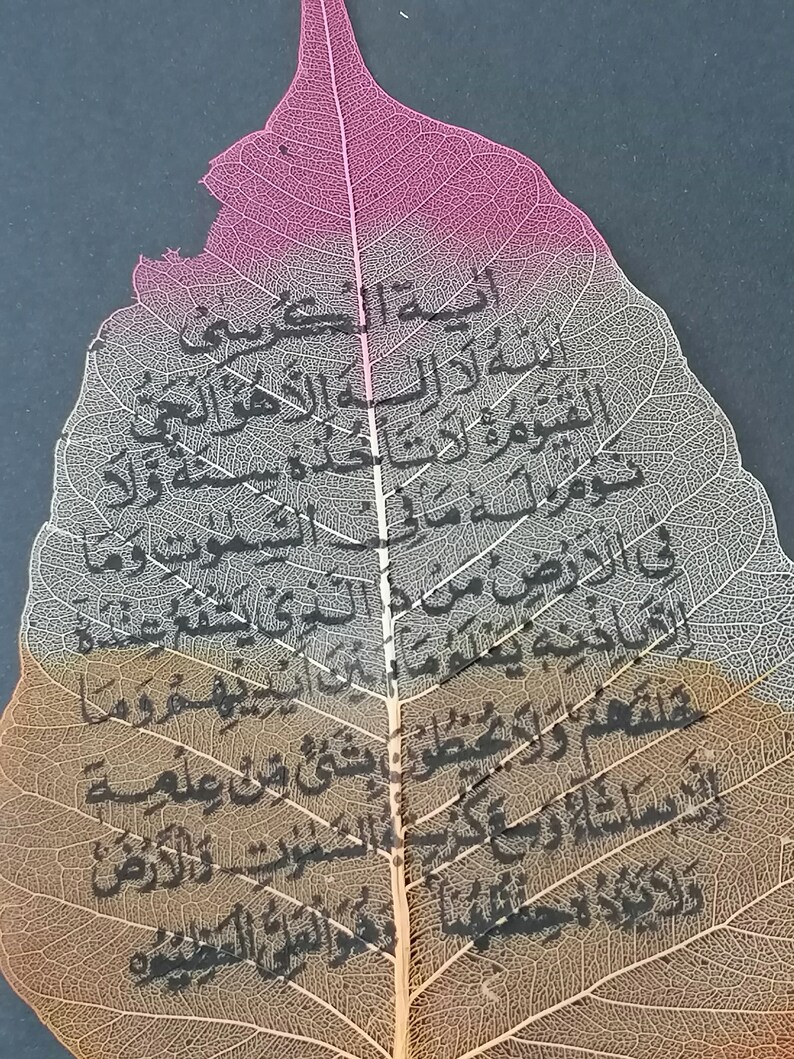 اٰية الكرسى
اَللّٰهُ لَا اِلٰـهَ اِلَّا هُوَ الْحَيُّ
الْقَيُّوْمُ لَا تَاْخُذُهٗ سِنَةٌ وَّلَا
نَوْمٌ لَهٗ مَا فِى السَّمٰوٰتِ وَمَا
فِى الْاَرْضِ مَنْ ذَا الَّذِىْ يَشْفَعُ عِنْدَهٗ
اِلَّا بِاِذْنِهٖ يَعْلَمُ مَا بَيْنَ اَيْدِيْهِمْ وَمَا
خَلْفَهُمْ وَلَا يُحِيْطُوْنَ بِشَىْءٍ مِّنْ عِلْمِهٖ
اِلَّا بِمَا شَآءَ وَسِعَ كُرْسِيُّهُ السَّمٰوٰتِ وَالْاَرْضَ
وَلَا يَئُوْدُهٗ حِفْظُهُمَا وَهُوَ الْعَلِىُّ الْعَظِيْمُ